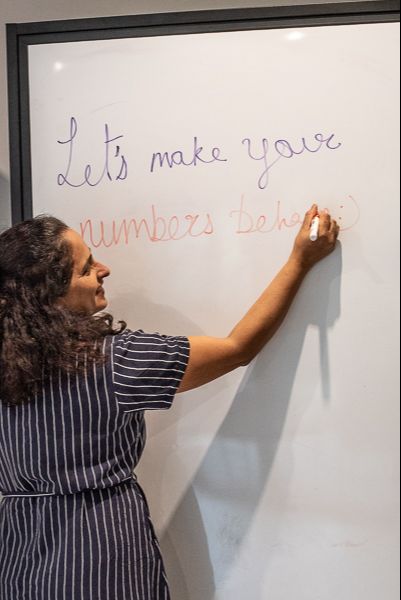 Let's make your
numbers :)